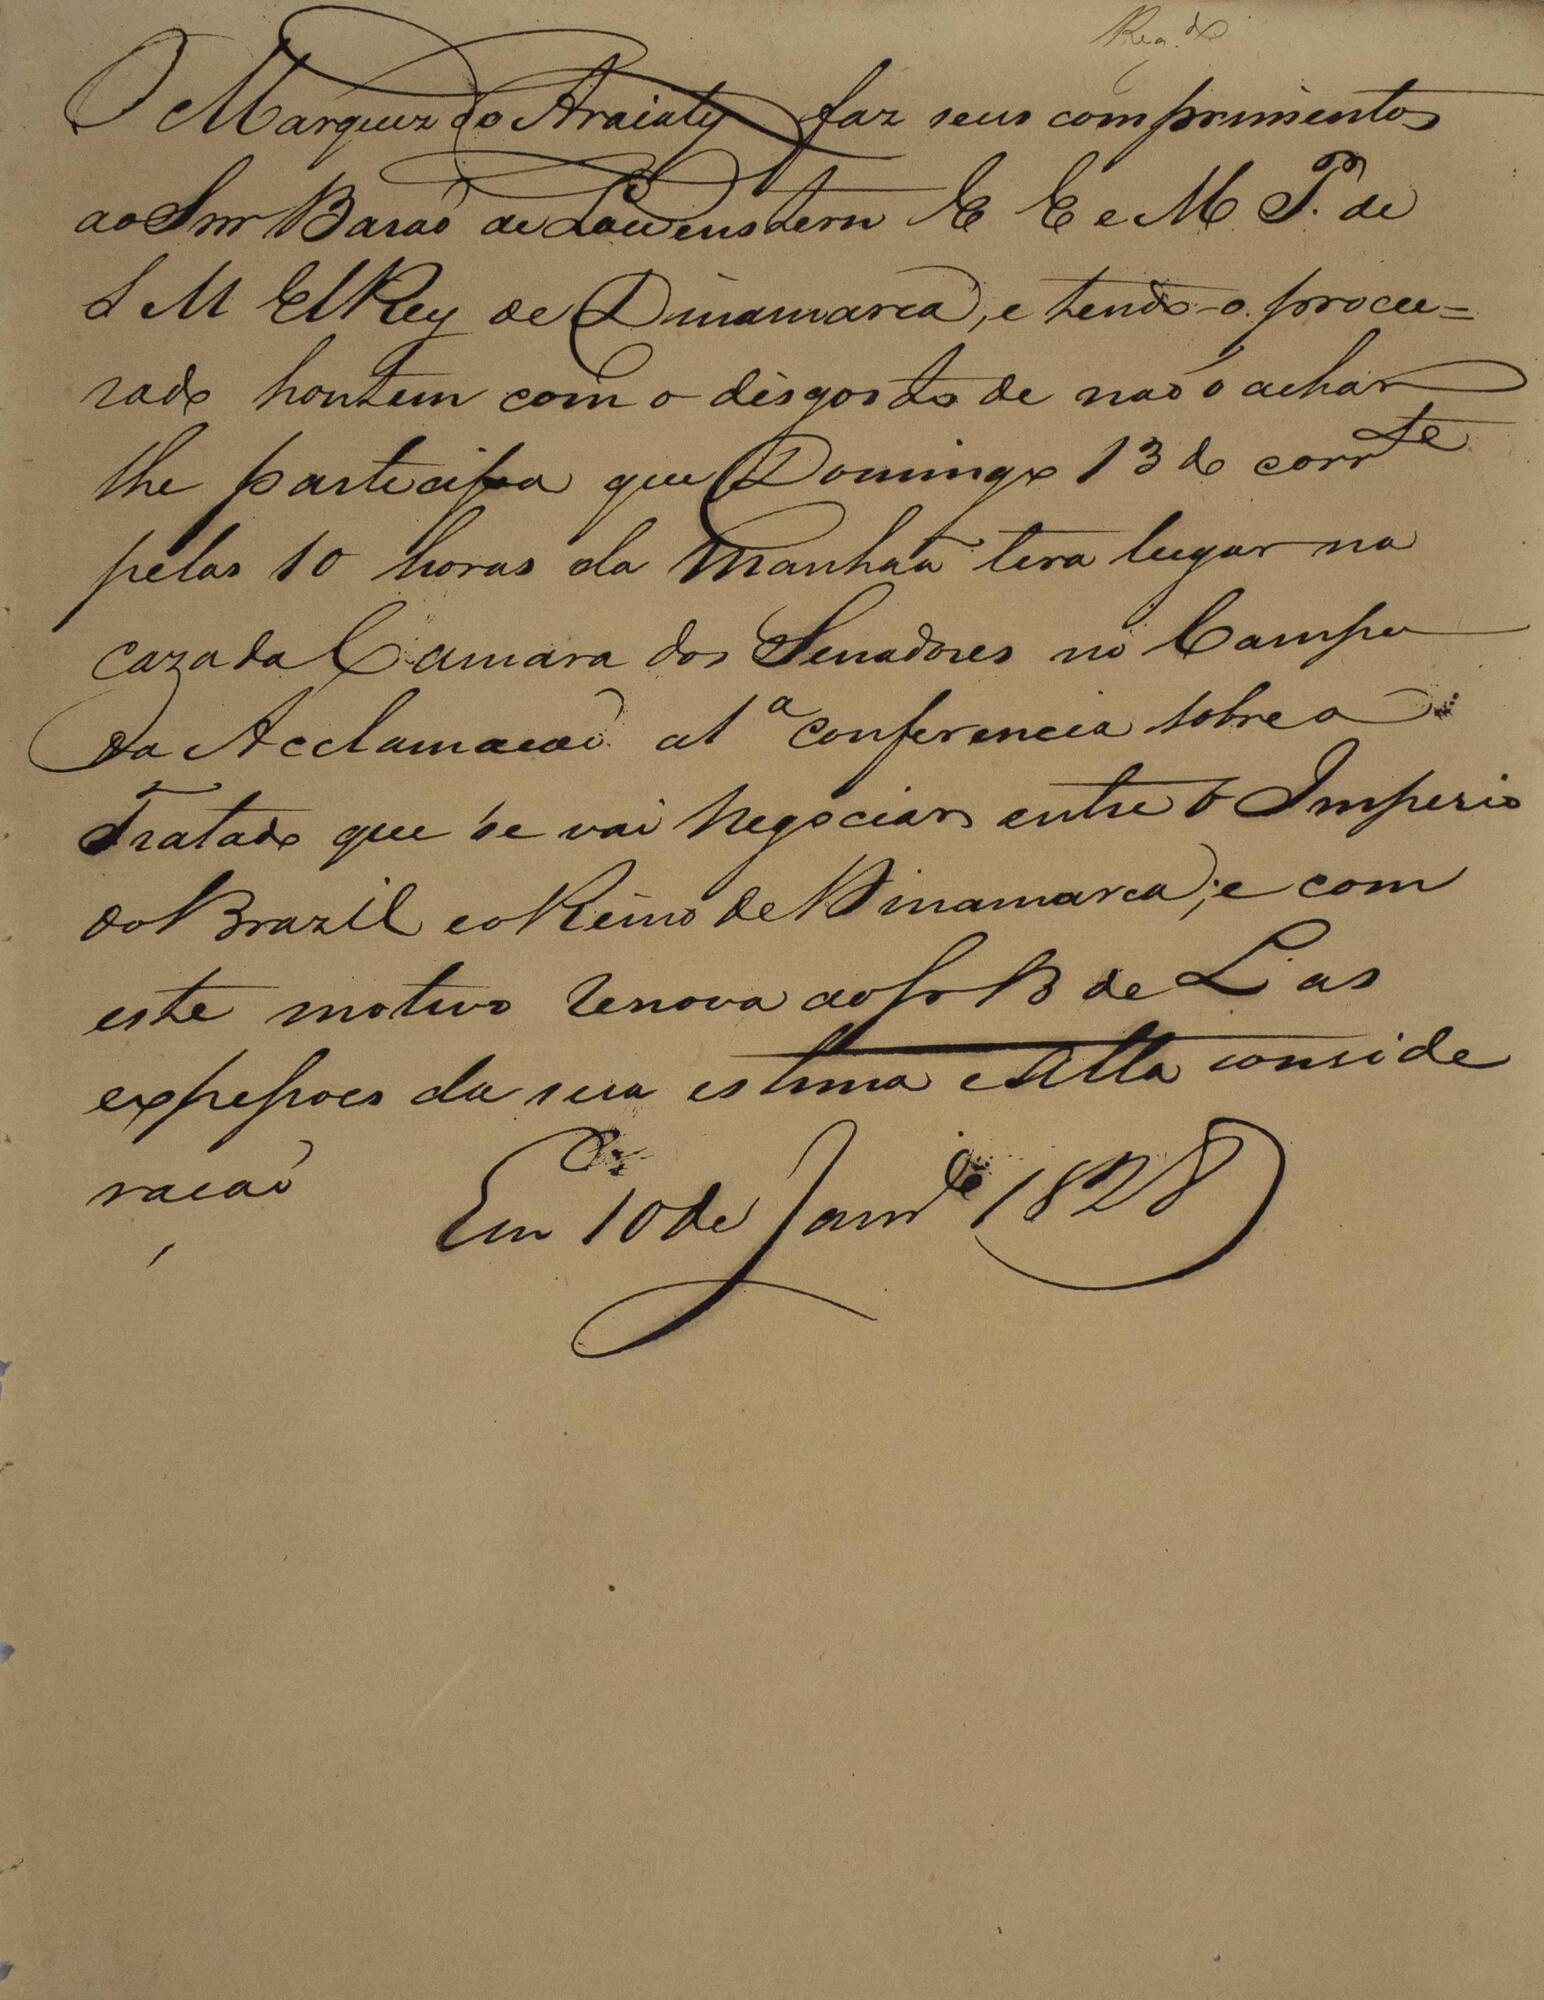 Reg.do
O Marquez do Araiaty faz seus comprimentos
ao Snr Barao de Lowenstern E E e M P. de
S M ElRey de Dinamarca, e tendo-o procu=
rado hontem com o disgosto de não o achar
lhe participa que Domingo 13 do corrte
pelas 10 horas da Manhaã tera lugar na
caza da Camara dos Senadores no Campo
da Acclamacaõ a 1ª conferencia sobre o
Tratado que se vai Negociar entre o Imperio
do Brazil e o Reino de Dinamarca; e com
este motivo renova ao Sr B de L as
expressoes da sua estima e Alta conside
racaõ
Em 10 de Janro de 1828